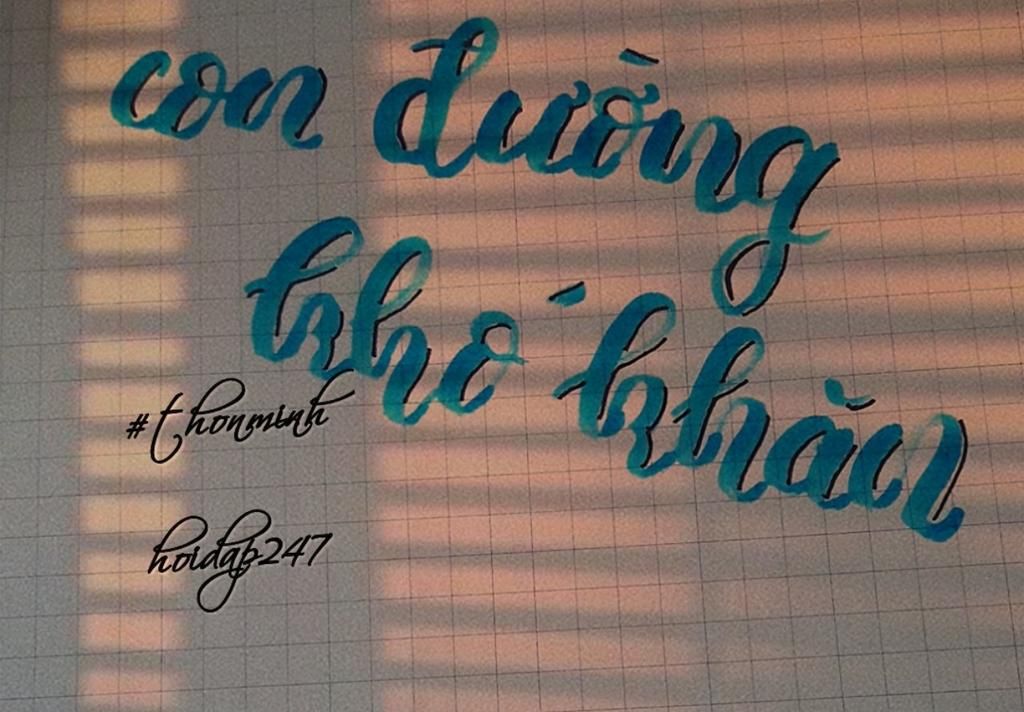 con đường
khó khăn
#thonminh
hoidap247